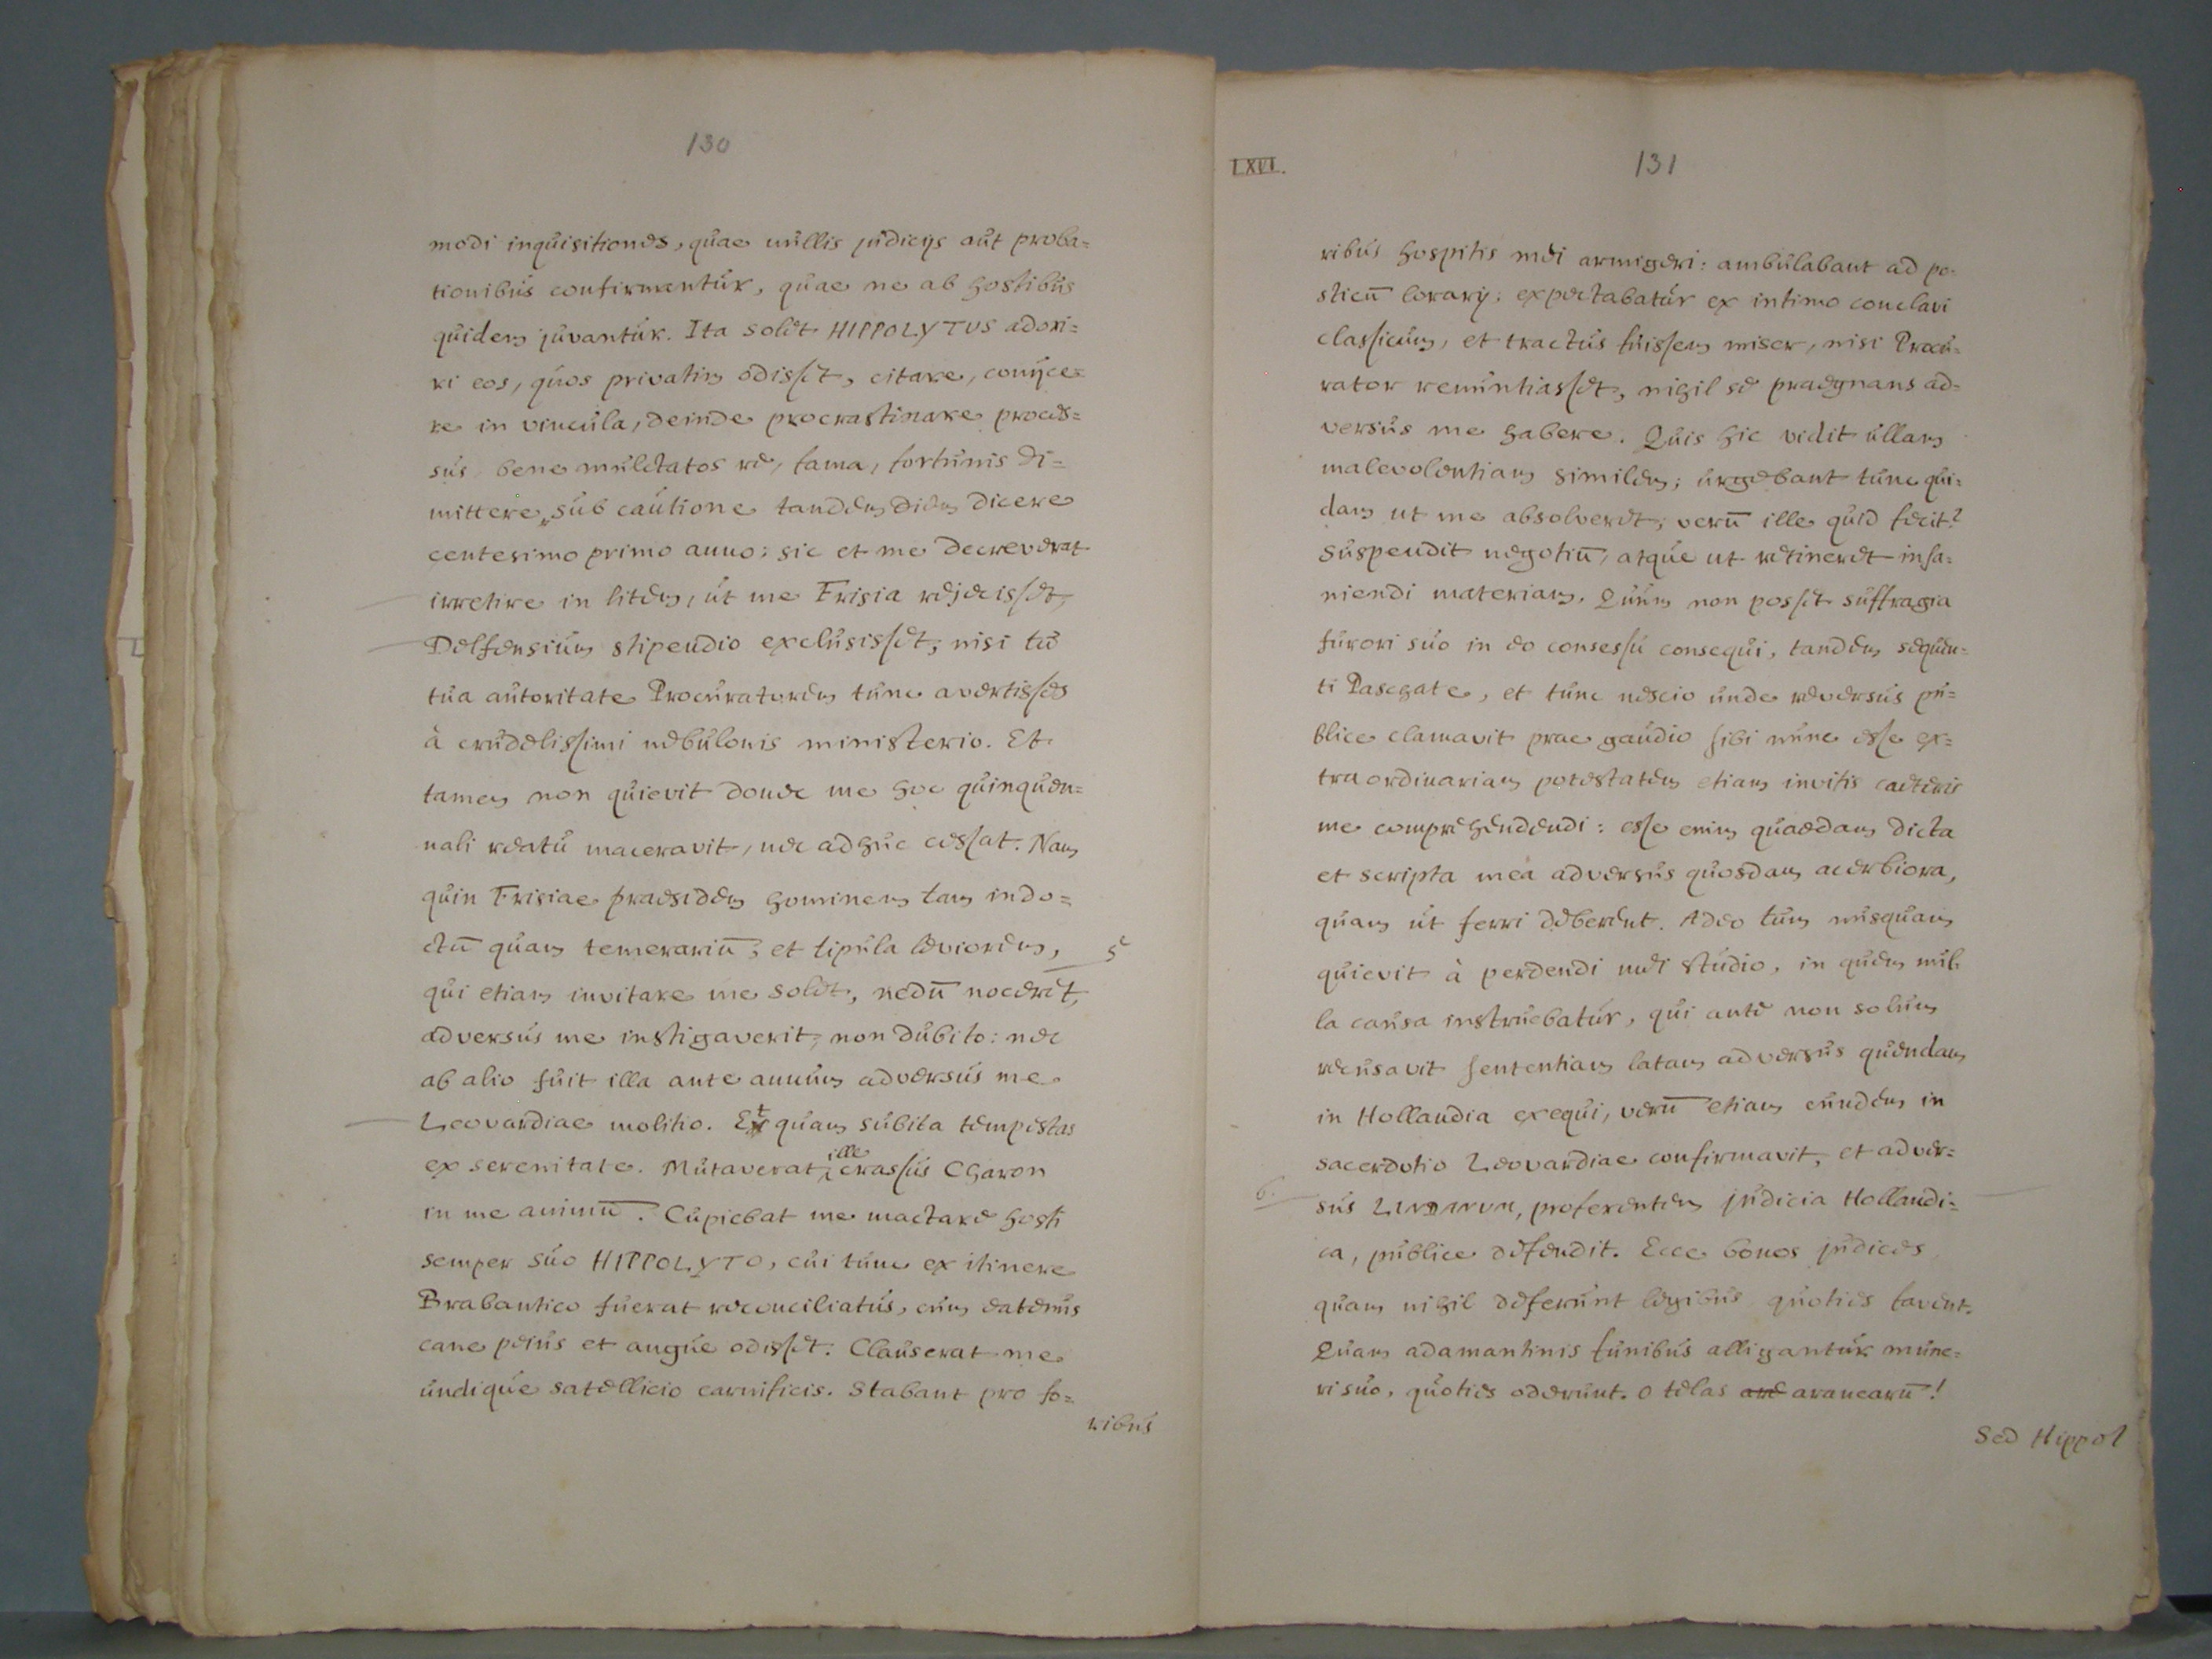 130
modi inquisitiones, quae nullis judicijs aut proba=
tionibus confirmentur, quae ne ab hostibus
quidem juvantur. Ita solet HIPPOLYTUS adori=
ri eos, quos privatim odisset, citare, conijce=
re in vincula, deinde procrastinare proces=
sus bene mulctatos re, fama, fortunis di=
mittere, sub cautione tandem diem dicere
centesimo primo anno: sic et me decreverat
irretire in litem, ut me Frisia rejecisset,
Delfensium stipendio exclusisset, nisi tu
tua autoritate Procuratorem tunc avertisses
à crudelissimi nebulonis ministerio. Et
tamen non quievit donec me hoc quinquen=
nali reatu maceravit, nec adhuc cessat. Nam
quin Frisiae praesidem hominem tam indo=
ctū quam temerariū, et tipula leviorem,
5
qui etiam invitare me solet, nedū noceret,
adversus me instigaverit, non dubito: nec
ab alio fuit illa ante annum adversus me
Leovardiae molitio. Et quam subita tempestas
ex serenitate. Mutaverat ille crassus Charon
in me animū. Cupiebat me mactare hosti
semper suo HIPPOLYTO, cui tunc ex itinere
Brabantico fuerat reconciliatus, cum eatenus
cane peius et angue odisset. Clauserat me
undique satellicio carnificis. Stabant pro fo=
ribus
LXVI.
131
ribus hospitis mei armigeri: ambulabant ad po=
sticū lorarij: expectabatur ex intimo conclavi
classicum, et tractus fuissem miser, nisi Procu=
rator renuntiasset, nihil se praegnans ad=
versus me habere. Quis hic vidit ullam
malevolentiam similem; urgebant tunc qui=
dam ut me absolveret; verū ille quid fecit?
suspendit negotiū, atque ut retineret insa=
niendi materiam. Quum non posset suffragia
furori suo in eo consessu consequi, tandem sequen=
ti Paschate, et tunc nescio unde reversus pu=
blice clamavit prae gaudio sibi nunc esse ex=
traordinariam potestatem etiam invitis caeteris
me comprehendendi: esse enim quaedam dicta
et scripta mea adversus quosdam acerbiora,
quam ut ferri deberent. Adeo tum nusquam
quievit à perdendi mei studio, in quem nul=
la causa instruebatur, qui ante non solum
recusavit sententiam latam adversus quendam
in Hollandia exequi, verū etiam eundem in
sacerdotio Leovardiae confirmavit, et adver=
6.
sus LINDANUM, proferentem judicia Hollandi=
ca, publice defendit. Ecce bonos judices
quam nihil deferunt legibus quoties favent.
Quam adamantinis funibus alligantur mune=
ri suo, quoties oderunt. O telas are aranearū!
Sed Hippol